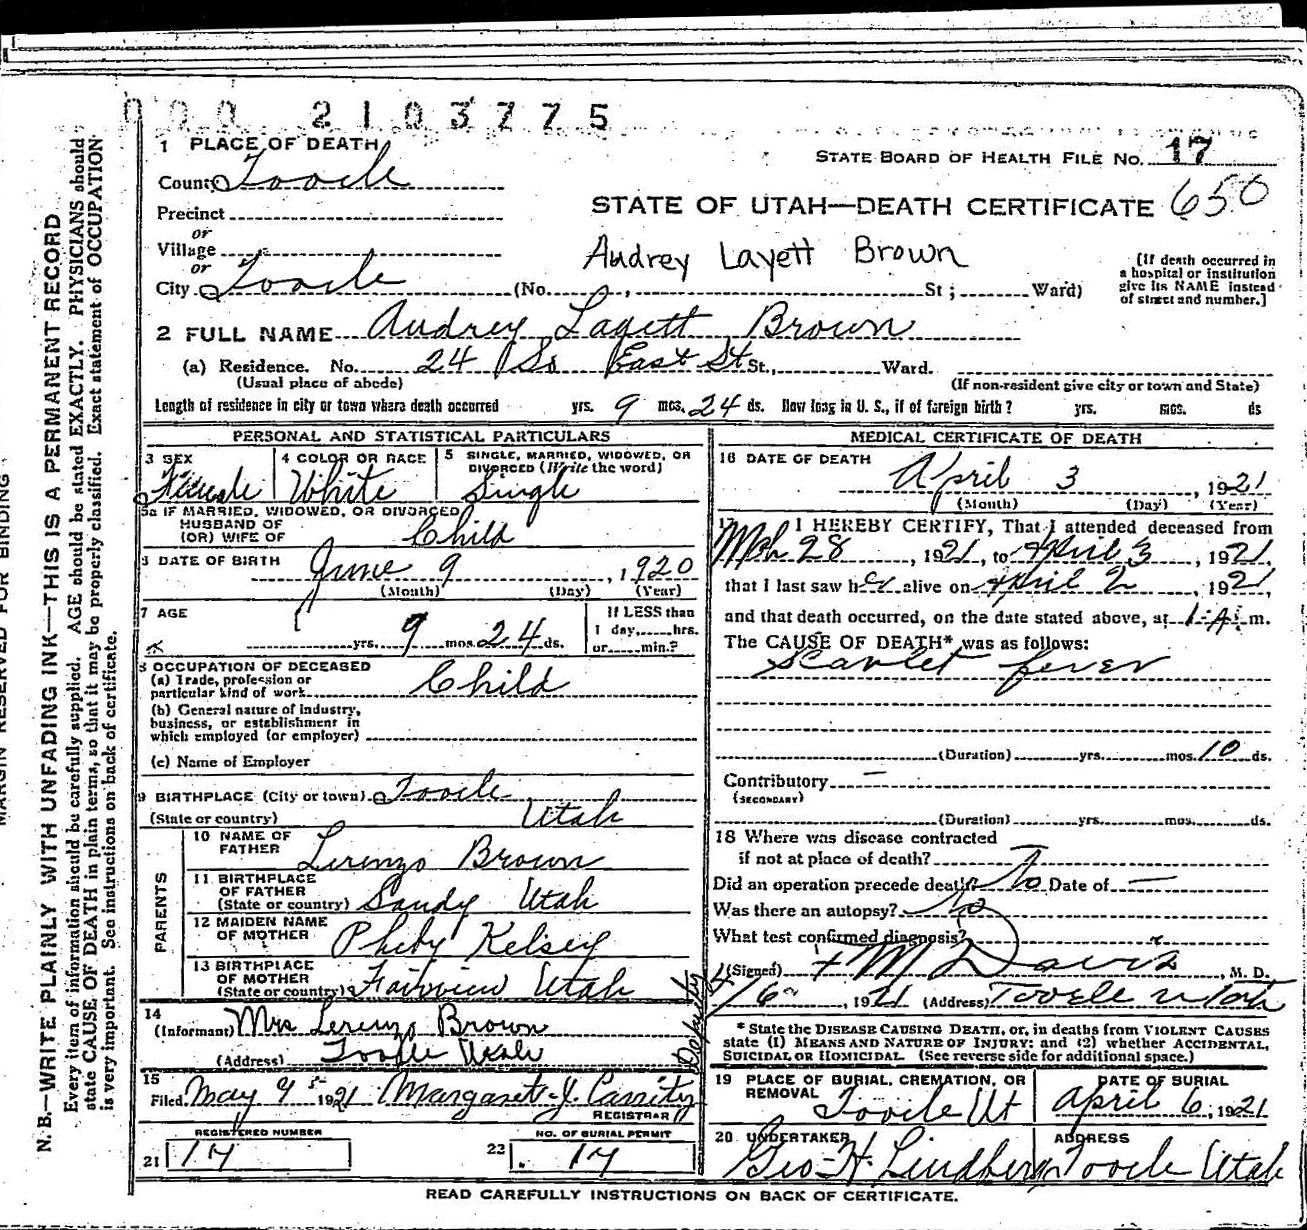 000 2103775
1 PLACE OF DEATH
STATE BOARD OF HEALTH FILE NO. 17
County Tooele
650
Precinct
STATE OF UTAH—DEATH CERTIFICATE
or
Village
Audrey Layett Brown
or
City Tooele (No. , St; Ward)
[If death occurred in
a hospital or institution
give its NAME instead
of street and number.]
2 FULL NAME Audrey Layett Brown
(a) Residence. No. 24 So East St St., Ward.
(Usual place of abode) (If non-resident give city or town and State)
Length of residence in city or town where death occurred yrs. 9 mos. 24 ds. How long in U. S., if of foreign birth? yrs. mos. ds
PERSONAL AND STATISTICAL PARTICULARS
3 SEX
Female
4 COLOR OR RACE
White
5 SINGLE, MARRIED, WIDOWED, OR
DIVORCED (Write the word)
Single
5a IF MARRIED, WIDOWED, OR DIVORCED
HUSBAND OF
(OR) WIFE OF Child
6 DATE OF BIRTH
June 9, 1920
(Month) (Day) (Year)
7 AGE
yrs. 9 mos. 24 ds.
If LESS than
1 day, hrs.
or min.?
8 OCCUPATION OF DECEASED
(a) Trade, profession or
particular kind of work Child
(b) General nature of industry,
business, or establishment in
which employed (or employer)
(c) Name of Employer
9 BIRTHPLACE (City or town) Tooele
(State or country) Utah
PARENTS
10 NAME OF
FATHER Lorenzo Brown
11 BIRTHPLACE
OF FATHER
(State or country) Sandy Utah
12 MAIDEN NAME
OF MOTHER Pheby Kelsey
13 BIRTHPLACE
OF MOTHER
(State or country) Fairview Utah
14
(Informant) Mrs Lorenzo Brown
(Address) Tooele Utah
15
Filed May 9 1921 Margaret J. Carrity
REGISTRAR
Deputy
REGISTERED NUMBER
21 17
NO. OF BURIAL PERMIT
22 17
MEDICAL CERTIFICATE OF DEATH
16 DATE OF DEATH
April 3, 1921
(Month) (Day) (Year)
17 I HEREBY CERTIFY, That I attended deceased from
Mch 28, 1921, to April 3, 1921,
that I last saw her alive on April 2, 1921,
and that death occurred, on the date stated above, at 1 A. m.
The CAUSE OF DEATH* was as follows:
Scarlet fever
(Duration) yrs. mos. 10 ds.
Contributory —
(SECONDARY)
(Duration) yrs. mos. ds.
18 Where was disease contracted
if not at place of death?
Did an operation precede death? No Date of —
Was there an autopsy? No
What test confirmed diagnosis?
(Signed) F M Davis, M. D.
4/6, 1921 (Address) Tooele Utah
* State the DISEASE CAUSING DEATH, or, in deaths from VIOLENT CAUSES
state (1) MEANS AND NATURE OF INJURY; and (2) whether ACCIDENTAL,
SUICIDAL OR HOMICIDAL. (See reverse side for additional space.)
19 PLACE OF BURIAL, CREMATION, OR
REMOVAL Tooele Ut
DATE OF BURIAL
April 6, 1921
20 UNDERTAKER
Geo. H. Lindberg
ADDRESS
Tooele Utah
READ CAREFULLY INSTRUCTIONS ON BACK OF CERTIFICATE.
MARGIN RESERVED FOR BINDING
N. B.—WRITE PLAINLY WITH UNFADING INK—THIS IS A PERMANENT RECORD
Every item of information should be carefully supplied. AGE should be stated EXACTLY. PHYSICIANS should
state CAUSE OF DEATH in plain terms, so that it may be properly classified. Exact statement of OCCUPATION
is very important. See instructions on back of certificate.